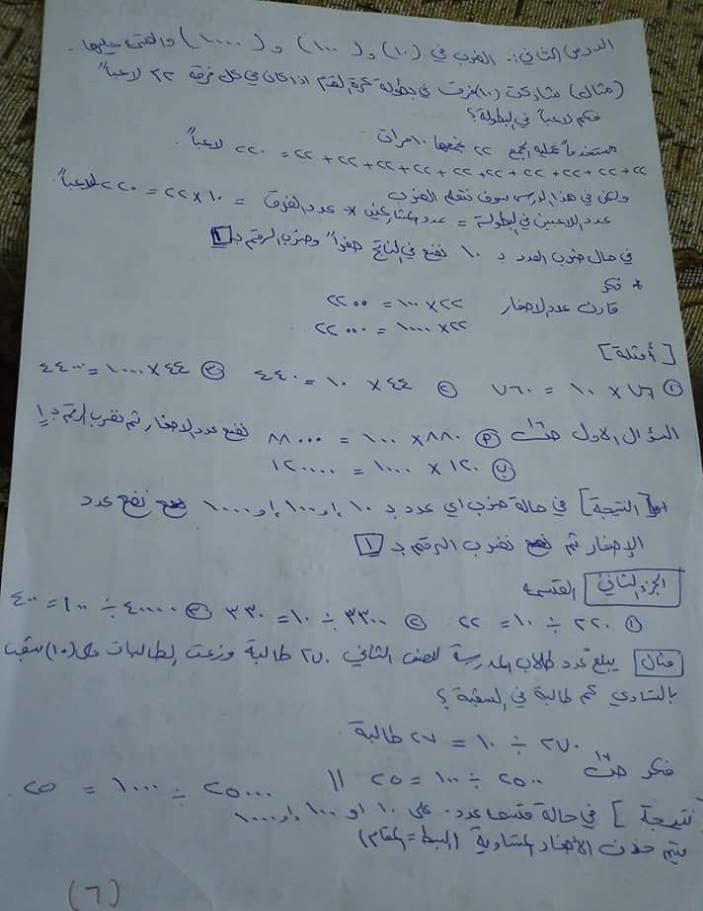 الدرس الثاني:- الضرب في (١٠) و (١٠٠) و (١٠٠٠) والقسمة عليها.
(مثال) شاركت (١٠) فرق في بطولة كرة القدم اذا كان في كل فرقة ٢٢ لاعباً
فكم لاعباً في البطولة؟
مستخدماً عملية الجمع ٢٢ نجمعها ١٠ مرات
٢٢ + ٢٢ + ٢٢ + ٢٢ + ٢٢ + ٢٢ + ٢٢ + ٢٢ + ٢٢ + ٢٢ = ٢٢٠ لاعباً.
ولكن في هذا الدرس سوف نتعلم الضرب
عدد الاعبين في البطولة = عدد × عدد الفرق = ١٠ × ٢٢ = ٢٢٠ لاعباً.
في حال ضرب العدد بـ ١٠ نضع في الناتج صفراً وضرب الرقم بـ ١
* فكر
قارن عدد الاصفار ٢٢ × ١٠٠ = ٢٢٠٠
٢٢ × ١٠٠٠ = ٢٢٠٠٠
[أمثلة]
١ ٧٦ × ١٠ = ٧٦٠ ٢ ٤٤ × ١٠ = ٤٤٠ ٣ ٤٤ × ١٠٠٠ = ٤٤٠٠٠
السؤال الاول ٨٨٠ × ١٠٠ = ٨٨٠٠٠ نضع عدد الاصفار ثم نضرب الرقم بـ ١
ب ١٢٠ × ١٠٠٠ = ١٢٠٠٠٠
[النتيجة] في حالة ضرب اي عدد بـ ١٠ او ١٠٠ او ١٠٠٠ نضع عدد
الاصفار ثم نضرب الرقم بـ ١
الجزء الثاني القسمة
١ ٢٢٠ ÷ ١٠ = ٢٢ ٢ ٣٣٠٠ ÷ ١٠ = ٣٣٠ ٣ ٤٠٠٠٠ ÷ ١٠٠ = ٤٠٠
مثال يبلغ عدد طلاب المدرسة للصف الثاني ٢٧٠ طالبة وزعت الطالبات على (١٠)
بالتساوي كم طالبة في الشعبة؟
٢٧٠ ÷ ١٠ = ٢٧ طالبة
فكر ٢٥٠٠ ÷ ١٠٠ = ٢٥ // ٢٥٠٠٠ ÷ ١٠٠٠ = ٢٥
[نتيجة] في حالة قسمة عدد على ١٠ او ١٠٠ او ١٠٠٠
يتم حذف الأصفار المتساوية (البسط = المقام)
(٦)